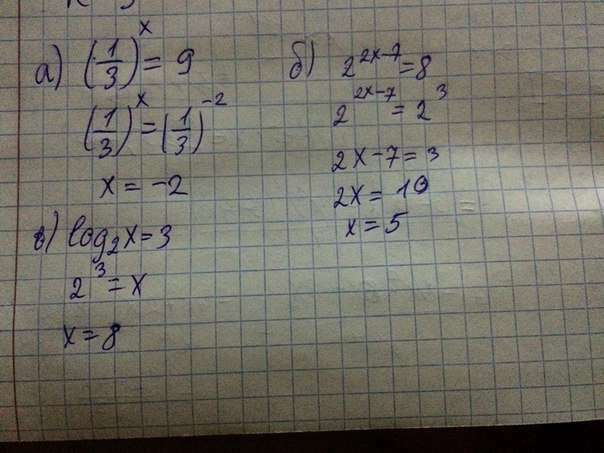 а) (1/3)^x = 9
(1/3)^x = (1/3)^-2
x = -2
б) 2^2x-7 = 8
2^2x-7 = 2^3
2x-7 = 3
2x = 10
x = 5
в) log₂x = 3
2^3 = x
x = 8